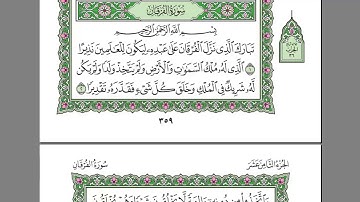 سُورَةُ الْفُرْقَانِ
بِسْمِ اللَّهِ الرَّحْمَٰنِ الرَّحِيمِ
تَبَارَكَ الَّذِي نَزَّلَ الْفُرْقَانَ عَلَىٰ عَبْدِهِ لِيَكُونَ لِلْعَالَمِينَ نَذِيرًا
١ الَّذِي لَهُ مُلْكُ السَّمَاوَاتِ وَالْأَرْضِ وَلَمْ يَتَّخِذْ وَلَدًا وَلَمْ يَكُن
لَّهُ شَرِيكٌ فِي الْمُلْكِ وَخَلَقَ كُلَّ شَيْءٍ فَقَدَّرَهُ تَقْدِيرًا ٢
٣٥٩
الجزء الثامن عشر
سُورَةُ الْفُرْقَانِ